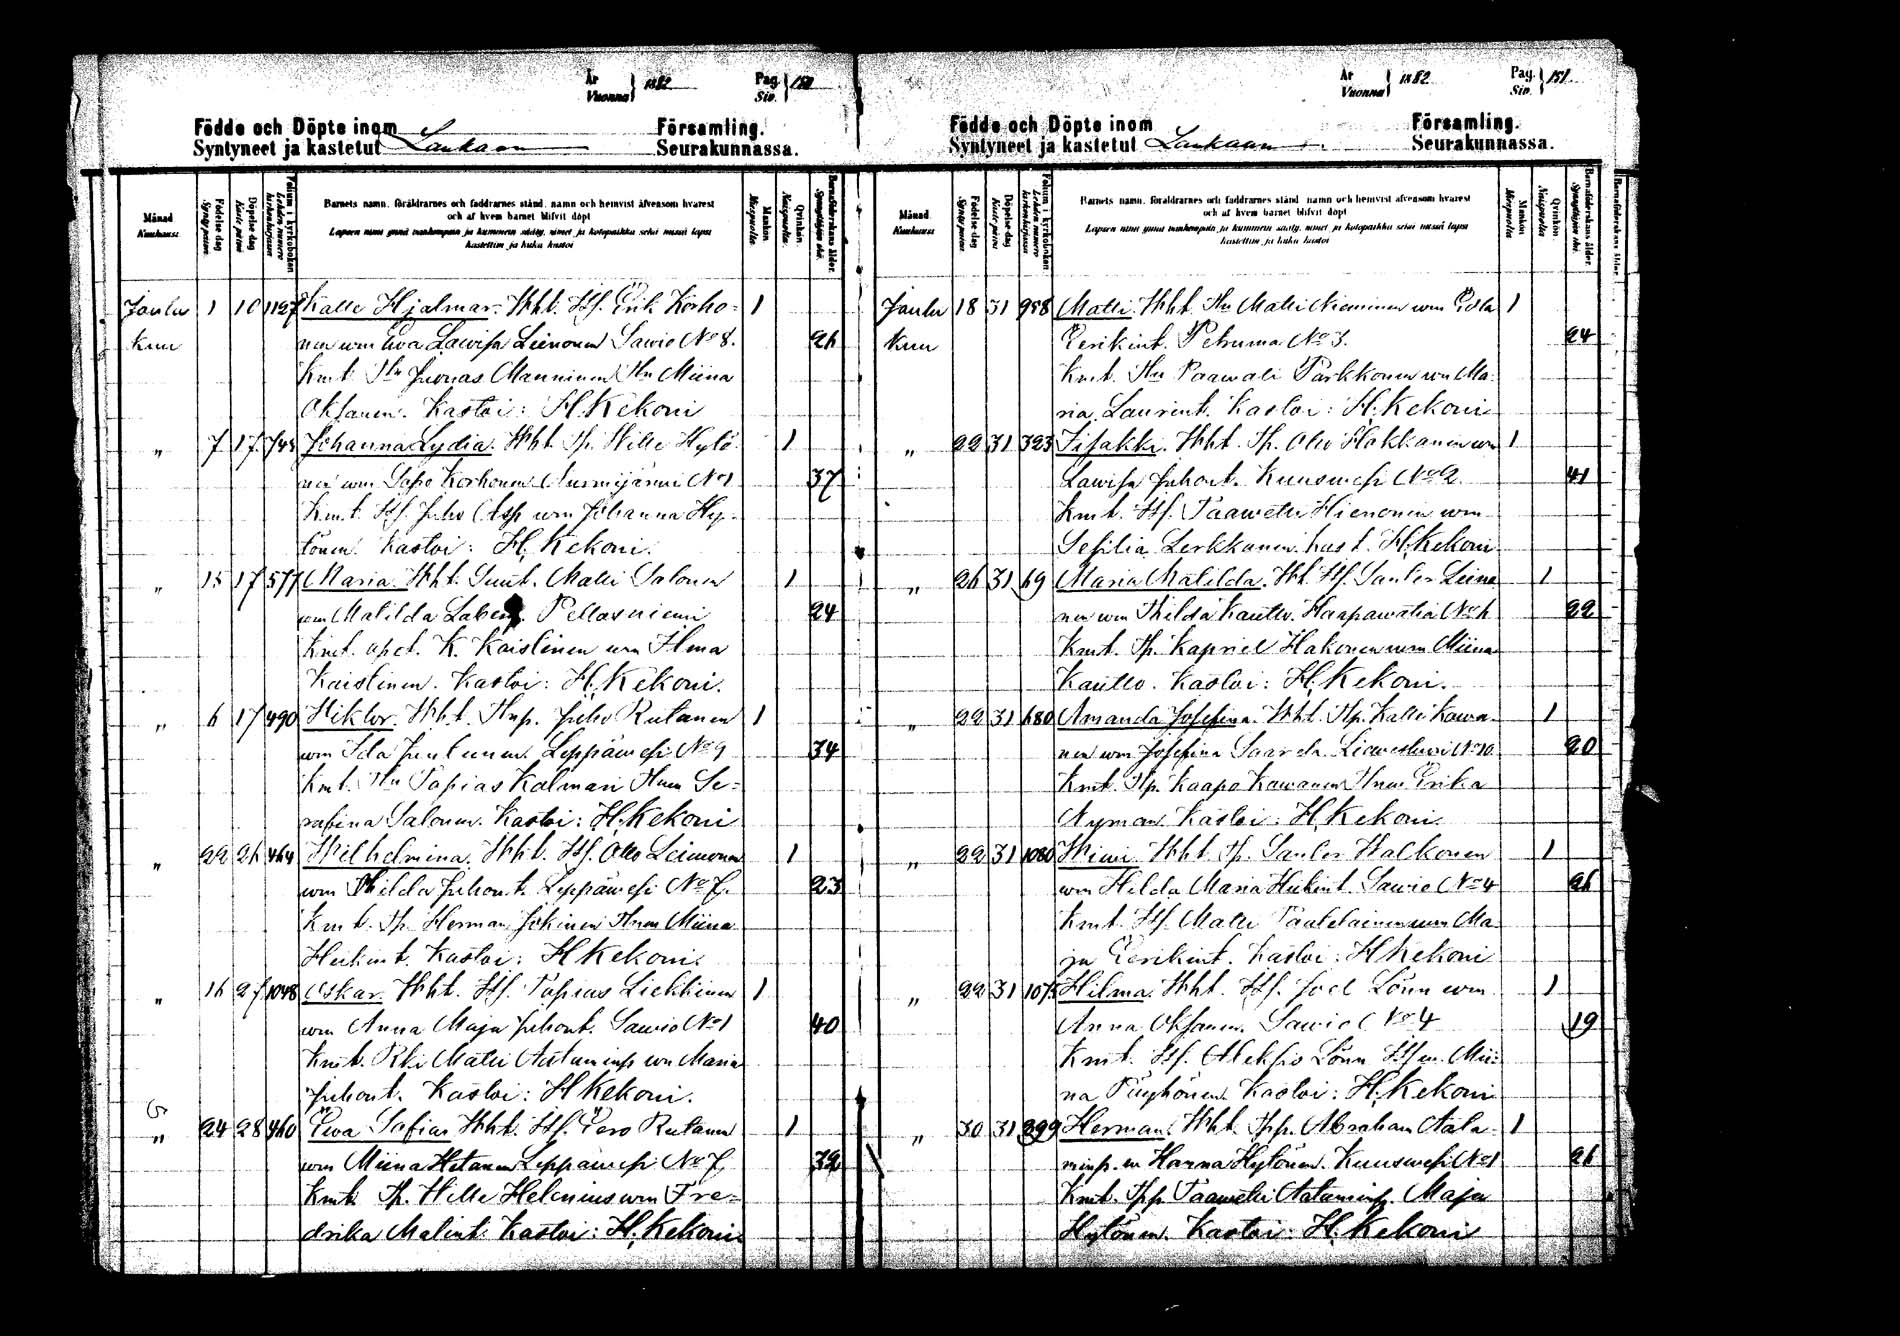 År
Vuonna } 1882
Pag.
Siv. } 150
Födde och Döpte inom Laukaan Församling.
Syntyneet ja kastetut Seurakunnassa.
Månad
Kuukausi
Födelse dag
Syntymä päivä
Döpelse dag
Kaste päivä
Folium i kyrkoboken
Lehden numero kirkonkirjassa
Barnets namn, föräldrarnes och faddrarnes stånd, namn och hemvist äfvensom hvarest
och af hvem barnet blifvit döpt
Lapsen nimi ynnä vanhempain ja kummein sääty, nimet ja kotopaikka sekä missä lapsi
kastettiin ja kuka kastoi
Mankön
Miespuolia
Qvinkön.
Naispuolia.
Barnaföderskans ålder.
Synnyttäjän ikä.
Jaulu 1 10 1127 Kalle Hjalmar. Wht. Itf. Erik Korho= 1
kuu nen wm Ewa Lawisa Leinonen Sawio No 8. 26
Kmt. Tln Juonas Manninen Tln Miina
Oksanen. Kastoi: H. Kekoni
„ 7 17 745 Johanna Lydia. Wht. Tp. Wille Hytö= 1
nen wm Sapo Korhonen No 1 37
Kmt. Itf. Juho Asp wm Johanna Hy-
tönen. Kastoi: H. Kekoni.
„ 15 17 577 Maria. Wht. Matti Salonen 1
wm Matilda Pellosniemi 24
Kmt. K. Kaistinen wm Ilma
Kaistinen. Kastoi: H. Kekoni.
„ 6 17 490 Wiktor. Wht. Juho Rutanen 1
wm Ida Leppäwesi No 9 34
Kmt. Tln Topias Kalmari Se=
rafina Salonen. Kastoi: H. Kekoni
„ 22 26 464 Wilhelmina. Wht. Itf. Otto Leinonen 1
wm Hilda Juhont. Leppäwesi No 7. 23
Kmt. Tp. Herman Jokinen Miina
Heikint. Kastoi: H Kekoni.
„ 16 27 1048 Oskar. Wht. Itf. Topias Liekkinen 1
wm Anna Maja Juhont. Sawio No 1 40
Kmt. Matti Aataminp wm Maria
Juhont. Kastoi: H Kekoni.
„ 24 28 460 Ewa Sofia. Wht. Itf. Eero Rutanen 1
wm Miina Hetanen Leppäwesi No 7. 32
Kmt. Tp. Wille Helenius wm Fre=
drika Malint. Kastoi: H. Kekoni
År
Vuonna } 1882
Pag.
Siv. } 151
Födde och Döpte inom Laukaan Församling.
Syntyneet ja kastetut Seurakunnassa.
Månad
Kuukausi
Födelse dag
Syntymä päivä
Döpelse dag
Kaste päivä
Folium i kyrkoboken
Lehden numero kirkonkirjassa
Barnets namn, föräldrarnes och faddrarnes stånd, namn och hemvist äfvensom hvarest
och af hvem barnet blifvit döpt
Lapsen nimi ynnä vanhempain ja kummein sääty, nimet ja kotopaikka sekä missä lapsi
kastettiin ja kuka kastoi
Mankön
Miespuolia
Qvinkön.
Naispuolia.
Barnaföderskans ålder.
Synnyttäjän ikä.
Barnaföderskans ålder.
Jaulu 18 31 988 Matti. Wht. Tln Matti Nieminen wm Edla 1
kuu Eerikint. Petruma No 3. 24
Kmt. Tln Paawali Parkkonen wm Ma-
ria Laurint. Kastoi: H. Kekoni
„ 22 31 323 Iisakki. Wht. Tp. Otto Hakkanen wm 1
Lawisa Juhont. Kuuswesi No 2. 41
Kmt. Itf. Taawetti Hienonen wm
Sesilia Lerkkanen. Kast. H. Kekoni
„ 26 31 69 Maria Matilda. Wht. Itf. Santeri Leino 1
nen wm Hilda Kautto. Haapawatia No 6 22
Kmt. Tp. Kapriel Hakonen wm Miina
Kautto. Kastoi: H. Kekoni.
„ 22 31 680 Amanda Josefina. Wht. Tp. Kalle Kowa- 1
nen wm Josefina Liewestuori No 10. 20
Kmt. Tp. Kaapo Kowanen Erika
Nyman. Kastoi: H. Kekoni.
„ 22 31 1080 Wiiwi. Wht. Tp. Santeri Walkonen 1
wm Hilda Maria Heikint. Sawio No 4 26
Kmt. Itf. Matti Taatelainen wm Ma-
ja Eerikint. Kastoi: H Kekoni
„ 22 31 1075 Hilma. Wht. Itf. Joel Lönn wm 1
Anna Oksanen. Sawio No 4 19
Kmt. Itf. Aleksio Lönn Mii=
na Kastoi: H. Kekoni
„ 30 31 299 Herman. Wht. Tpp. Abraham Aata= 1
minp. w Hanna Hytönen. Kuuswesi No 1 26
Kmt. Tpp. Taawetti Aataminp. Maja
Hytönen. Kastoi: H. Kekoni